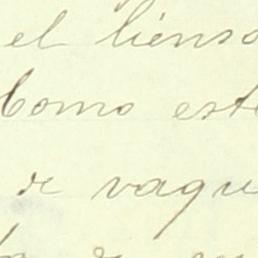 el liénso
Como este
de vaque